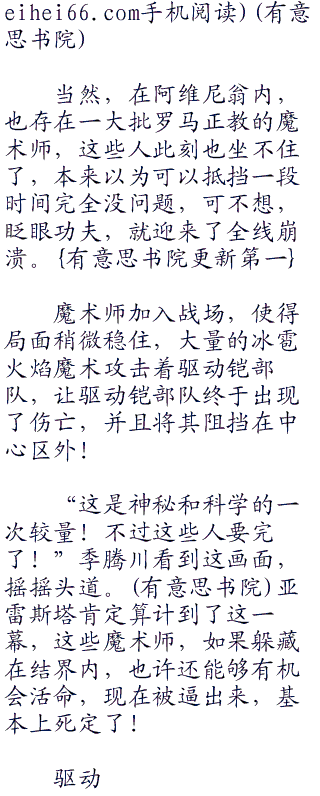 eihei66.com手机阅读)(有意
思书院)
当然，在阿维尼翁内，
也存在一大批罗马正教的魔
术师，这些人此刻也坐不住
了，本来以为可以抵挡一段
时间完全没问题，可不想，
眨眼功夫，就迎来了全线崩
溃。{有意思书院更新第一}
魔术师加入战场，使得
局面稍微稳住，大量的冰雹
火焰魔术攻击着驱动铠部
队，让驱动铠部队终于出现
了伤亡，并且将其阻挡在中
心区外！
“这是神秘和科学的一
次较量！不过这些人要完
了！”季腾川看到这画面，
摇摇头道。(有意思书院)亚
雷斯塔肯定算计到了这一
幕，这些魔术师，如果躲藏
在结界内，也许还能够有机
会活命，现在被逼出来，基
本上死定了！
驱动